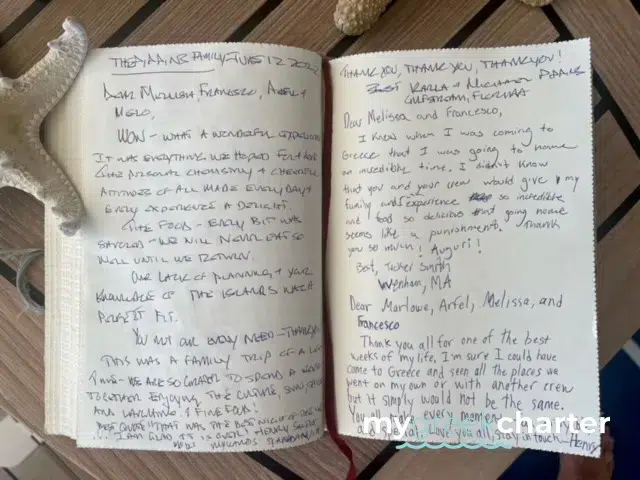 THE ADDINS FAMILY/JUNE 12 202
DEAR MELISSA, FRANCESCO, ARFEL &
MELO,
WOW - WHAT A WONDERFUL EXPERIENCE
IT WAS EVERYTHING WE HOPED FOR & MORE
THE PERSONAL CHEMISTRY & CHEERFUL
ATTITUDES OF ALL MADE EVERY DAY &
EVERY EXPERIENCE A DELIGHT.
THE FOOD - EVERY BIT WAS
SAVORED - WE WILL NEVER EAT SO
WELL UNTIL WE RETURN.
OUR LACK OF PLANNING & YOUR
KNOWLEDGE OF THE ISLANDS WAS A
PERFECT FIT.
YOU MET OUR EVERY NEED - THANK YOU
THIS WAS A FAMILY TRIP OF A LIFE
TIME - WE ARE SO TO SPEND A WEEK
TOGETHER ENJOYING THE CULTURE, SUN,
AND LAUGHING & FINE FOOD!
BEST QUOTE "THAT WAS THE BEST NIGHT OF
I AM GLAD IT IS OVER!" HENRY
THANK YOU, THANK YOU, THANK YOU!
BEST KARLA & MICHAEL
GULFSTREAM, FLORIDA
Dear Melissa and Francesco,
I knew when I was coming to
Greece that I was going to have
an incredible time. I didn't know
that you and your crew would give my
family and experience so incredible
and food so delicious that going home
seems like a punishment. Thank
you so much! Auguri!
Best, Tucker Smith
Wenham, MA
Dear Marlowe, Arfel, Melissa, and
Francesco
Thank you all for one of the best
weeks of my life, I'm sure I could have
come to Greece and seen all the places we
went on my own or with another crew
but it simply would not be the same.
You make every moment
and special. Love you all, stay in touch - Henry
mygreekcharter